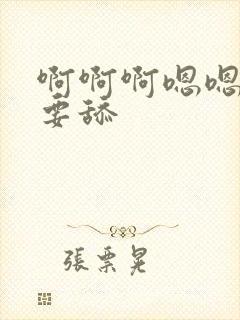 啊啊啊嗯嗯
要舔
張票晃